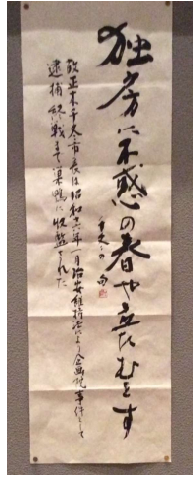 独房に不惑の春や立たむとす
千冬の句
故正木千冬市長は昭和十六年一月治安維持法により企画院事件として
逮捕終戦まで巣鴨に収監された